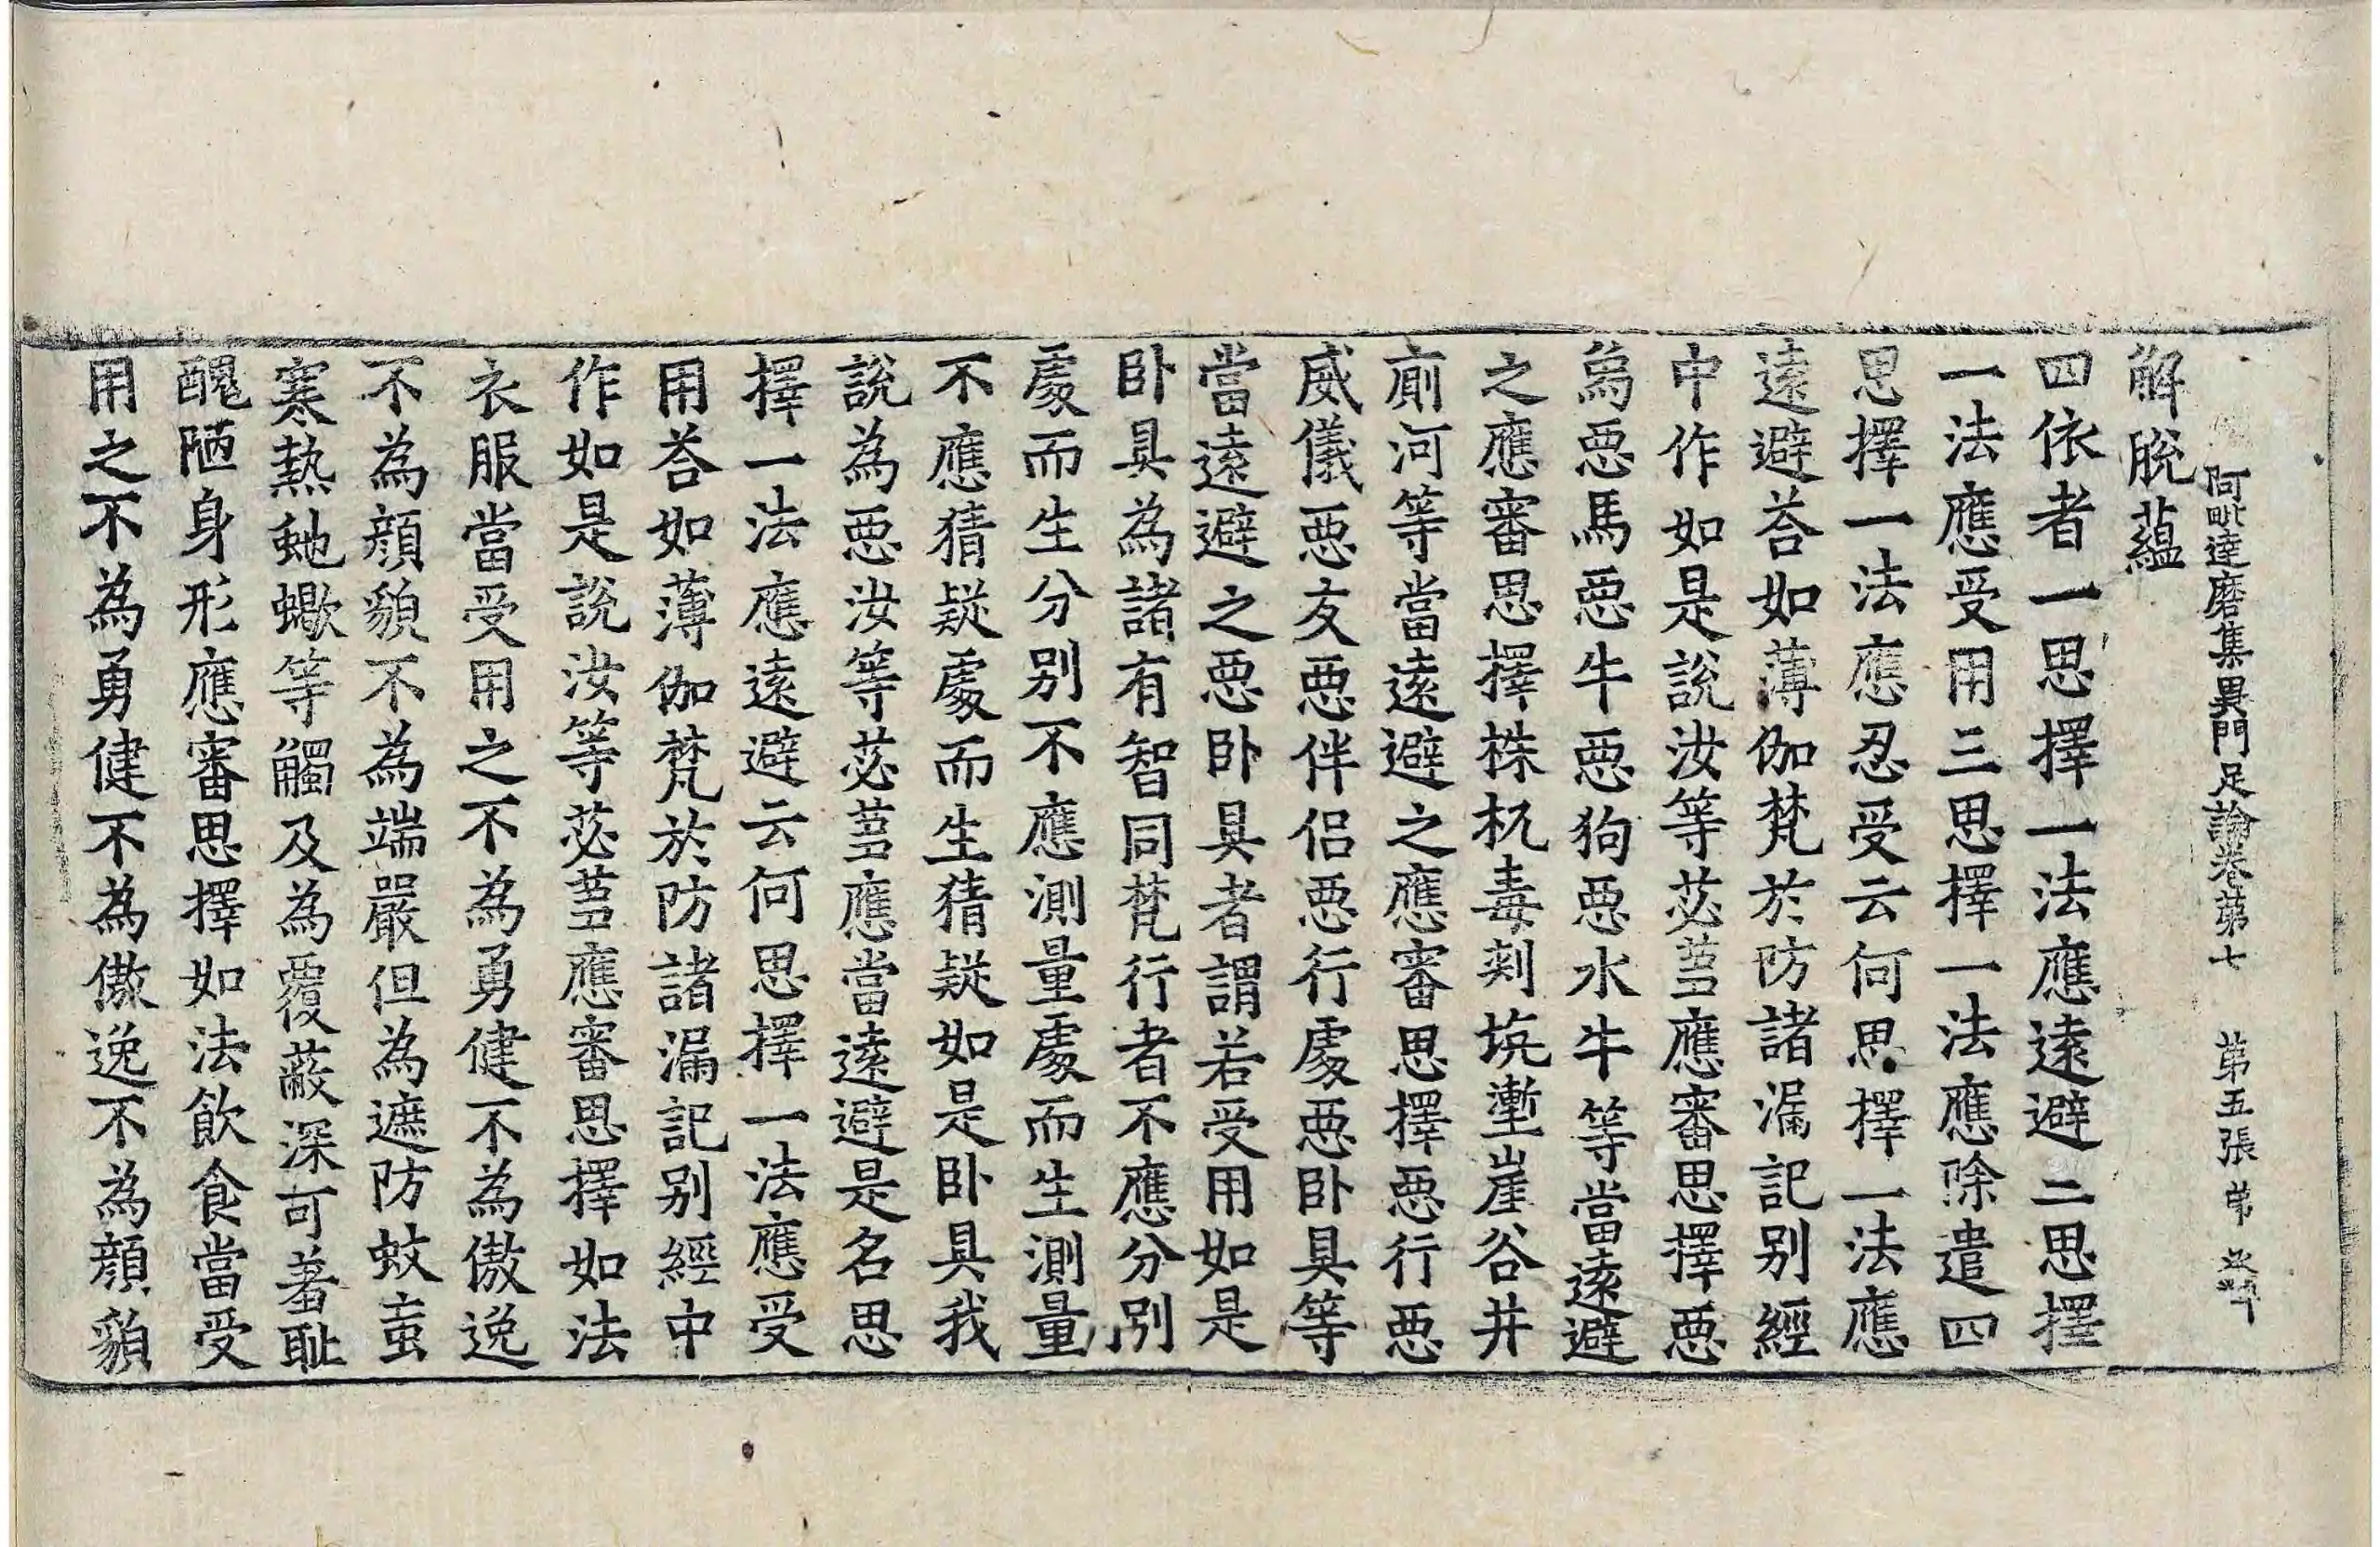 阿毗達磨集異門足論卷苐七 苐五張
解脫蘊
四依者一思擇一法應遠避二思擇
一法應受用三思擇一法應除遣四
思擇一法應忍受云何思擇一法應
遠避荅如薄伽梵於防諸漏記別經
中作如是說汝等苾蒭應審思擇惡
為惡馬惡牛惡狗惡水牛等當遠避
之應審思擇株杌毒刺坑壍崖谷井
廁河等當遠避之應審思擇惡行惡
威儀惡友惡伴侣惡行處惡卧具等
當遠避之惡卧具者謂若受用如是
卧具為諸有智同梵行者不應分別
處而生分別不應測量處而生測量
不應猜疑處而生猜疑如是卧具我
說為惡汝等苾蒭應當遠避是名思
擇一法應遠避云何思擇一法應受
用荅如薄伽梵於防諸漏記別經中
作如是說汝等苾蒭應審思擇如法
衣服當受用之不為勇健不為慠逸
不為顔貌不為端嚴但為遮防蚊䖟
寒熱虵蠍等觸及為覆蔽深可羞耻
醜陋身形應審思擇如法飲食當受
用之不為勇健不為慠逸不為顔貌